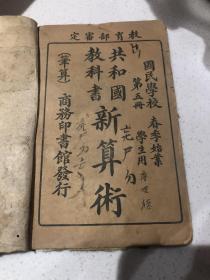 教育部審定
國民學校
第五冊
春季始業
學生用
共和國
教科書
新算術
(筆算)
商務印書館發行